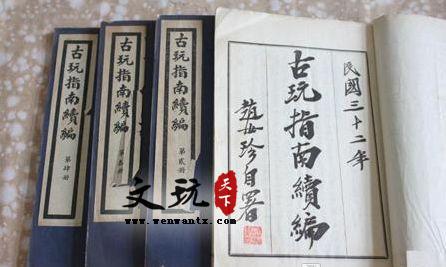 古玩指南續編
第肆册
古玩指南續編
古玩指南續編
第貳册
民國三十二年
古玩指南續編
趙汝珍自署
文玩天下
www.wenwantx.com